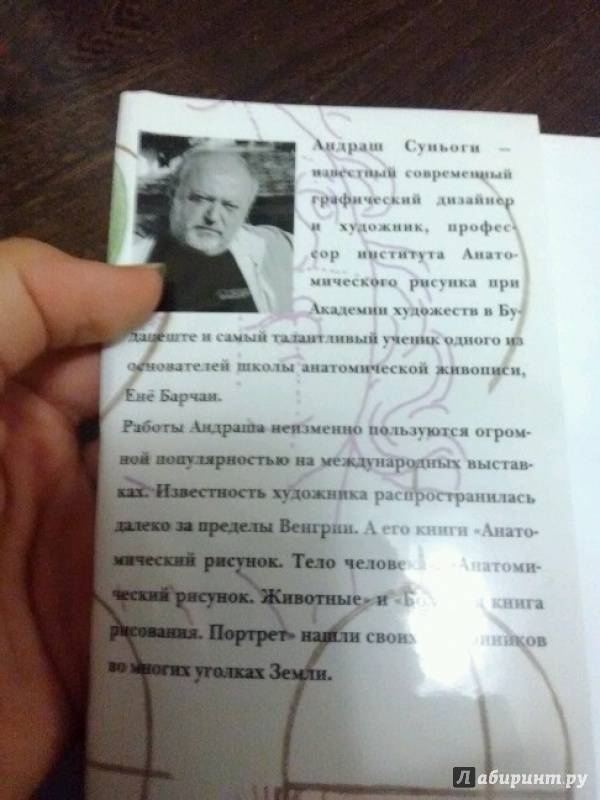 Андраш Суньоги –
известный современный
графический дизайнер
и художник, профес-
сор института Анато-
мического рисунка при
Академии художеств в Бу-
дапеште и самый талантливый ученик одного из
основателей школы анатомической живописи,
Енё Барчаи.
Работы Андраша неизменно пользуются огром-
ной популярностью на международных выстав-
ках. Известность художника распространилась
далеко за пределы Венгрии. А его книги «Анато-
мический рисунок. Тело человека», «Анатоми-
ческий рисунок. Животные» и книга
рисования. Портрет» нашли своих
во многих уголках Земли.
Лабиринт.ру